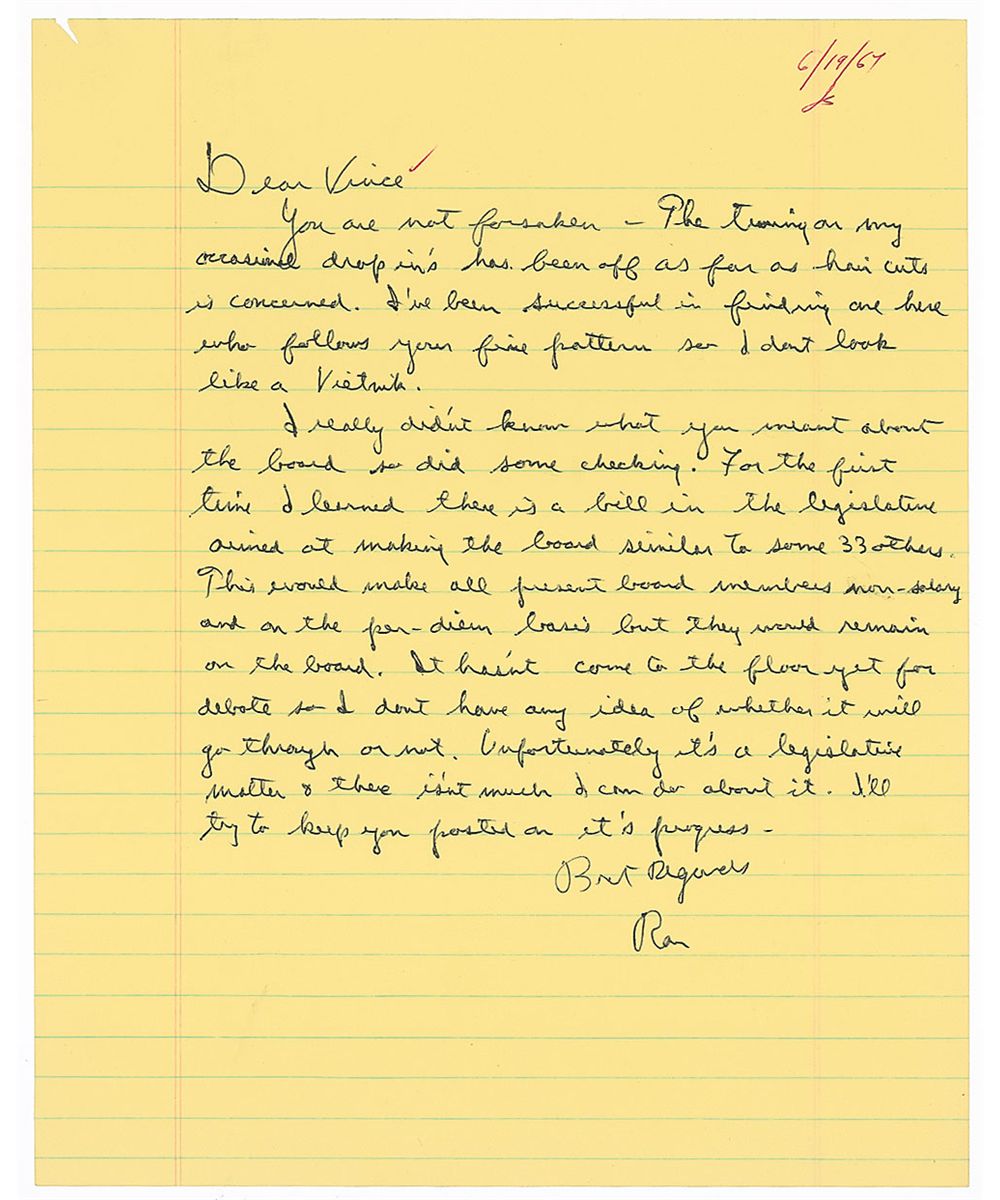 6/19/67
Dear Vince
You are not forsaken – The timing on my
occasional drop in's has been off as far as hair cuts
is concerned. I've been successful in finding one here
who follows your fine pattern so I dont look
like a Vietnik.
I really didn't know what you meant about
the board so did some checking. For the first
time I learned there is a bill in the legislature
aimed at making the board similar to some 33 others.
This would make all present board members non-salary
and on the per-diem basis but they would remain
on the board. It hasn't come to the floor yet for
debate so I dont have any idea of whether it will
go through or not. Unfortunately it's a legislative
matter & there isn't much I can do about it. I'll
try to keep you posted on it's progress –
Best Regards
Ron